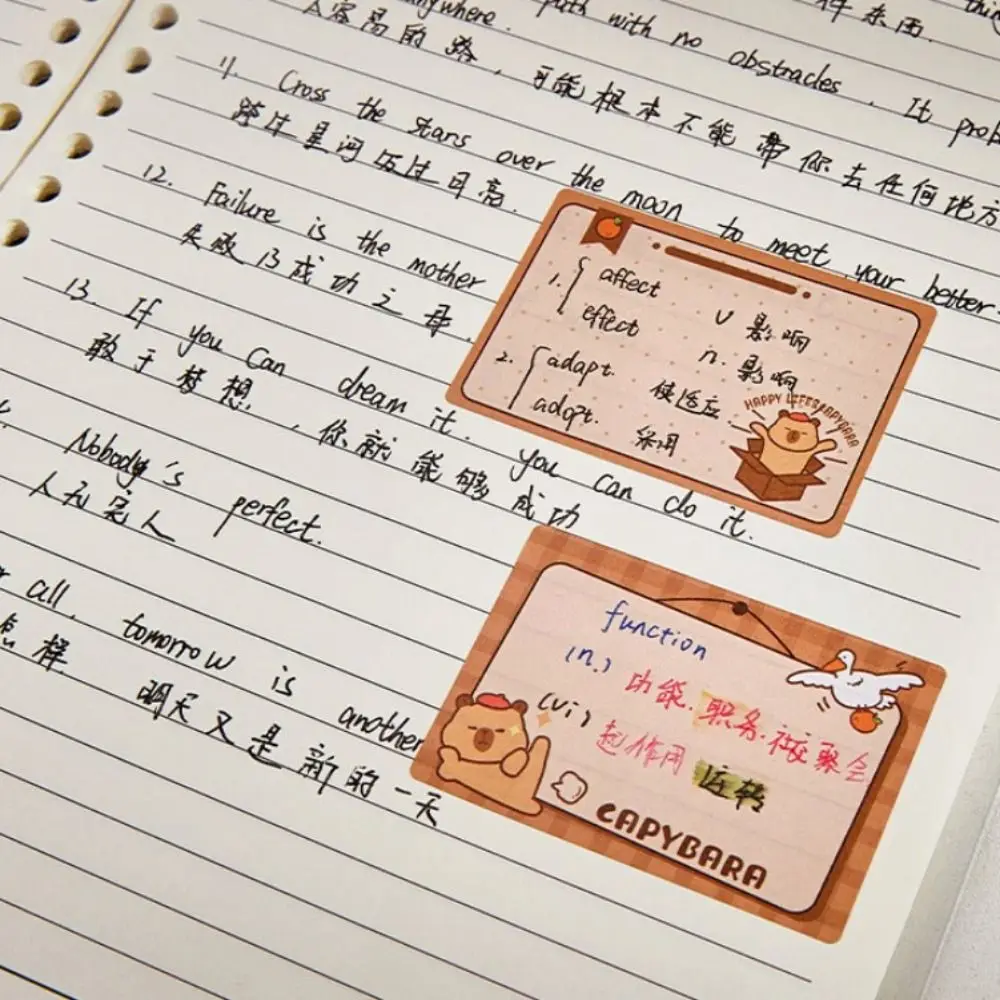 anywhere. path with no obstracles. It prob
人容易的路，可能根本不能带你去任何地方
件东西.
11. Cross the stars over the moon to meet your better-
跨过星河迈过月亮.
12. Failure is the mother
失败乃成功之母.
13. If you can dream it. you can do it.
敢于梦想，你就能够成功
Nobody's perfect.
人无完人
all, tomorrow is another
怎样 明天又是新的一天
1. affect v 影响
effect n. 影响
2. adapt. 使适应
adopt. 采用
HAPPY LIFE CAPYBARA
function
(n.) 功能. 职务. 社交聚会
(vi) 起作用 运转
CAPYBARA